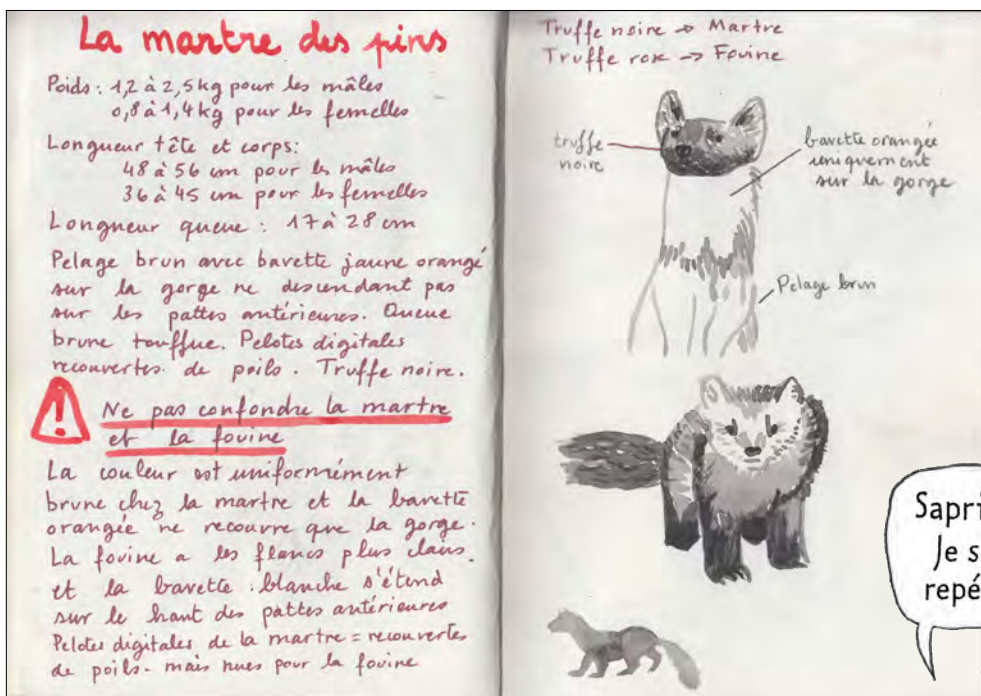 La martre des pins
Poids : 1,2 à 2,5 kg pour les mâles
0,8 à 1,4 kg pour les femelles
Longueur tête et corps :
48 à 56 cm pour les mâles
36 à 45 cm pour les femelles
Longueur queue : 17 à 28 cm
Pelage brun avec bavette jaune orangé
sur la gorge ne descendant pas
sur les pattes antérieures. Queue
brune touffue. Pelotes digitales
recouvertes de poils. Truffe noire.
!
Ne pas confondre la martre
et la fouine
La couleur est uniformément
brune chez la martre et la bavette
orangée ne recouvre que la gorge.
La fouine a les flancs plus clairs
et la bavette blanche s'étend
sur le haut des pattes antérieures
Pelotes digitales de la martre = recouvertes
de poils - mais nues pour la fouine
Truffe noire → Martre
Truffe rose → Fouine
truffe
noire
bavette orangée
uniquement
sur la gorge
Pelage brun
Sapri
Je s
repé